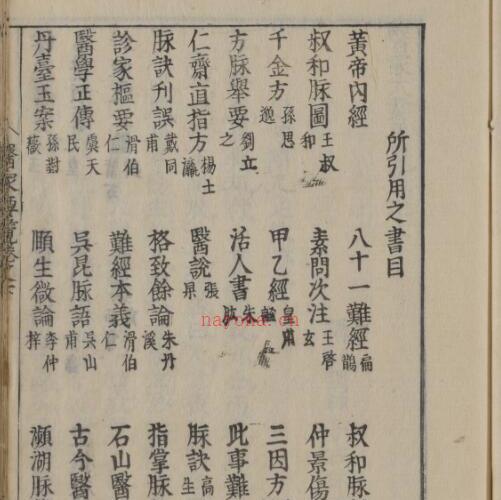 所引用之書目
黃帝內經 八十一難經 扁鵲 叔和脉
叔和脉圖 王叔和 素問次注 王啓玄 仲景傷
千金方 孫思邈 甲乙經 皇甫謐 三因方
方脉舉要 劉立之 活人書 朱肱 此事難
仁齋直指方 楊士瀛 醫說 張杲 脉訣 高生
脉訣刊誤 戴同甫 格致餘論 朱丹溪 指掌脉
診家樞要 滑伯仁 難經本義 滑伯仁 石山醫
醫學正傳 虞天民 吳昆脉語 吳山甫 古今醫
丹臺玉案 孫對薇 頤生微論 李仲梓 瀕湖脉
nayona.cn